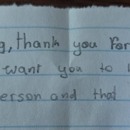 g, thank you for
want you to
erson and that